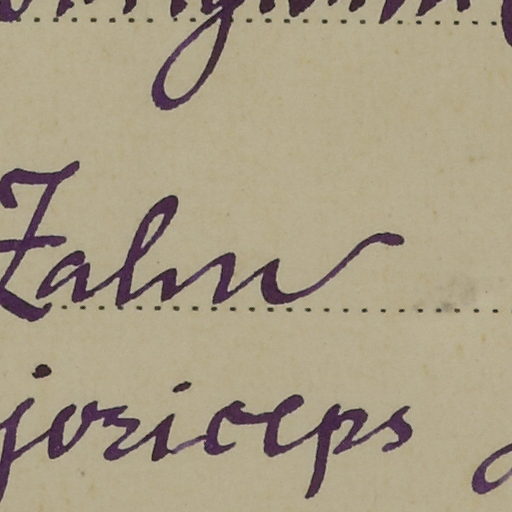 Zahn
joriceps